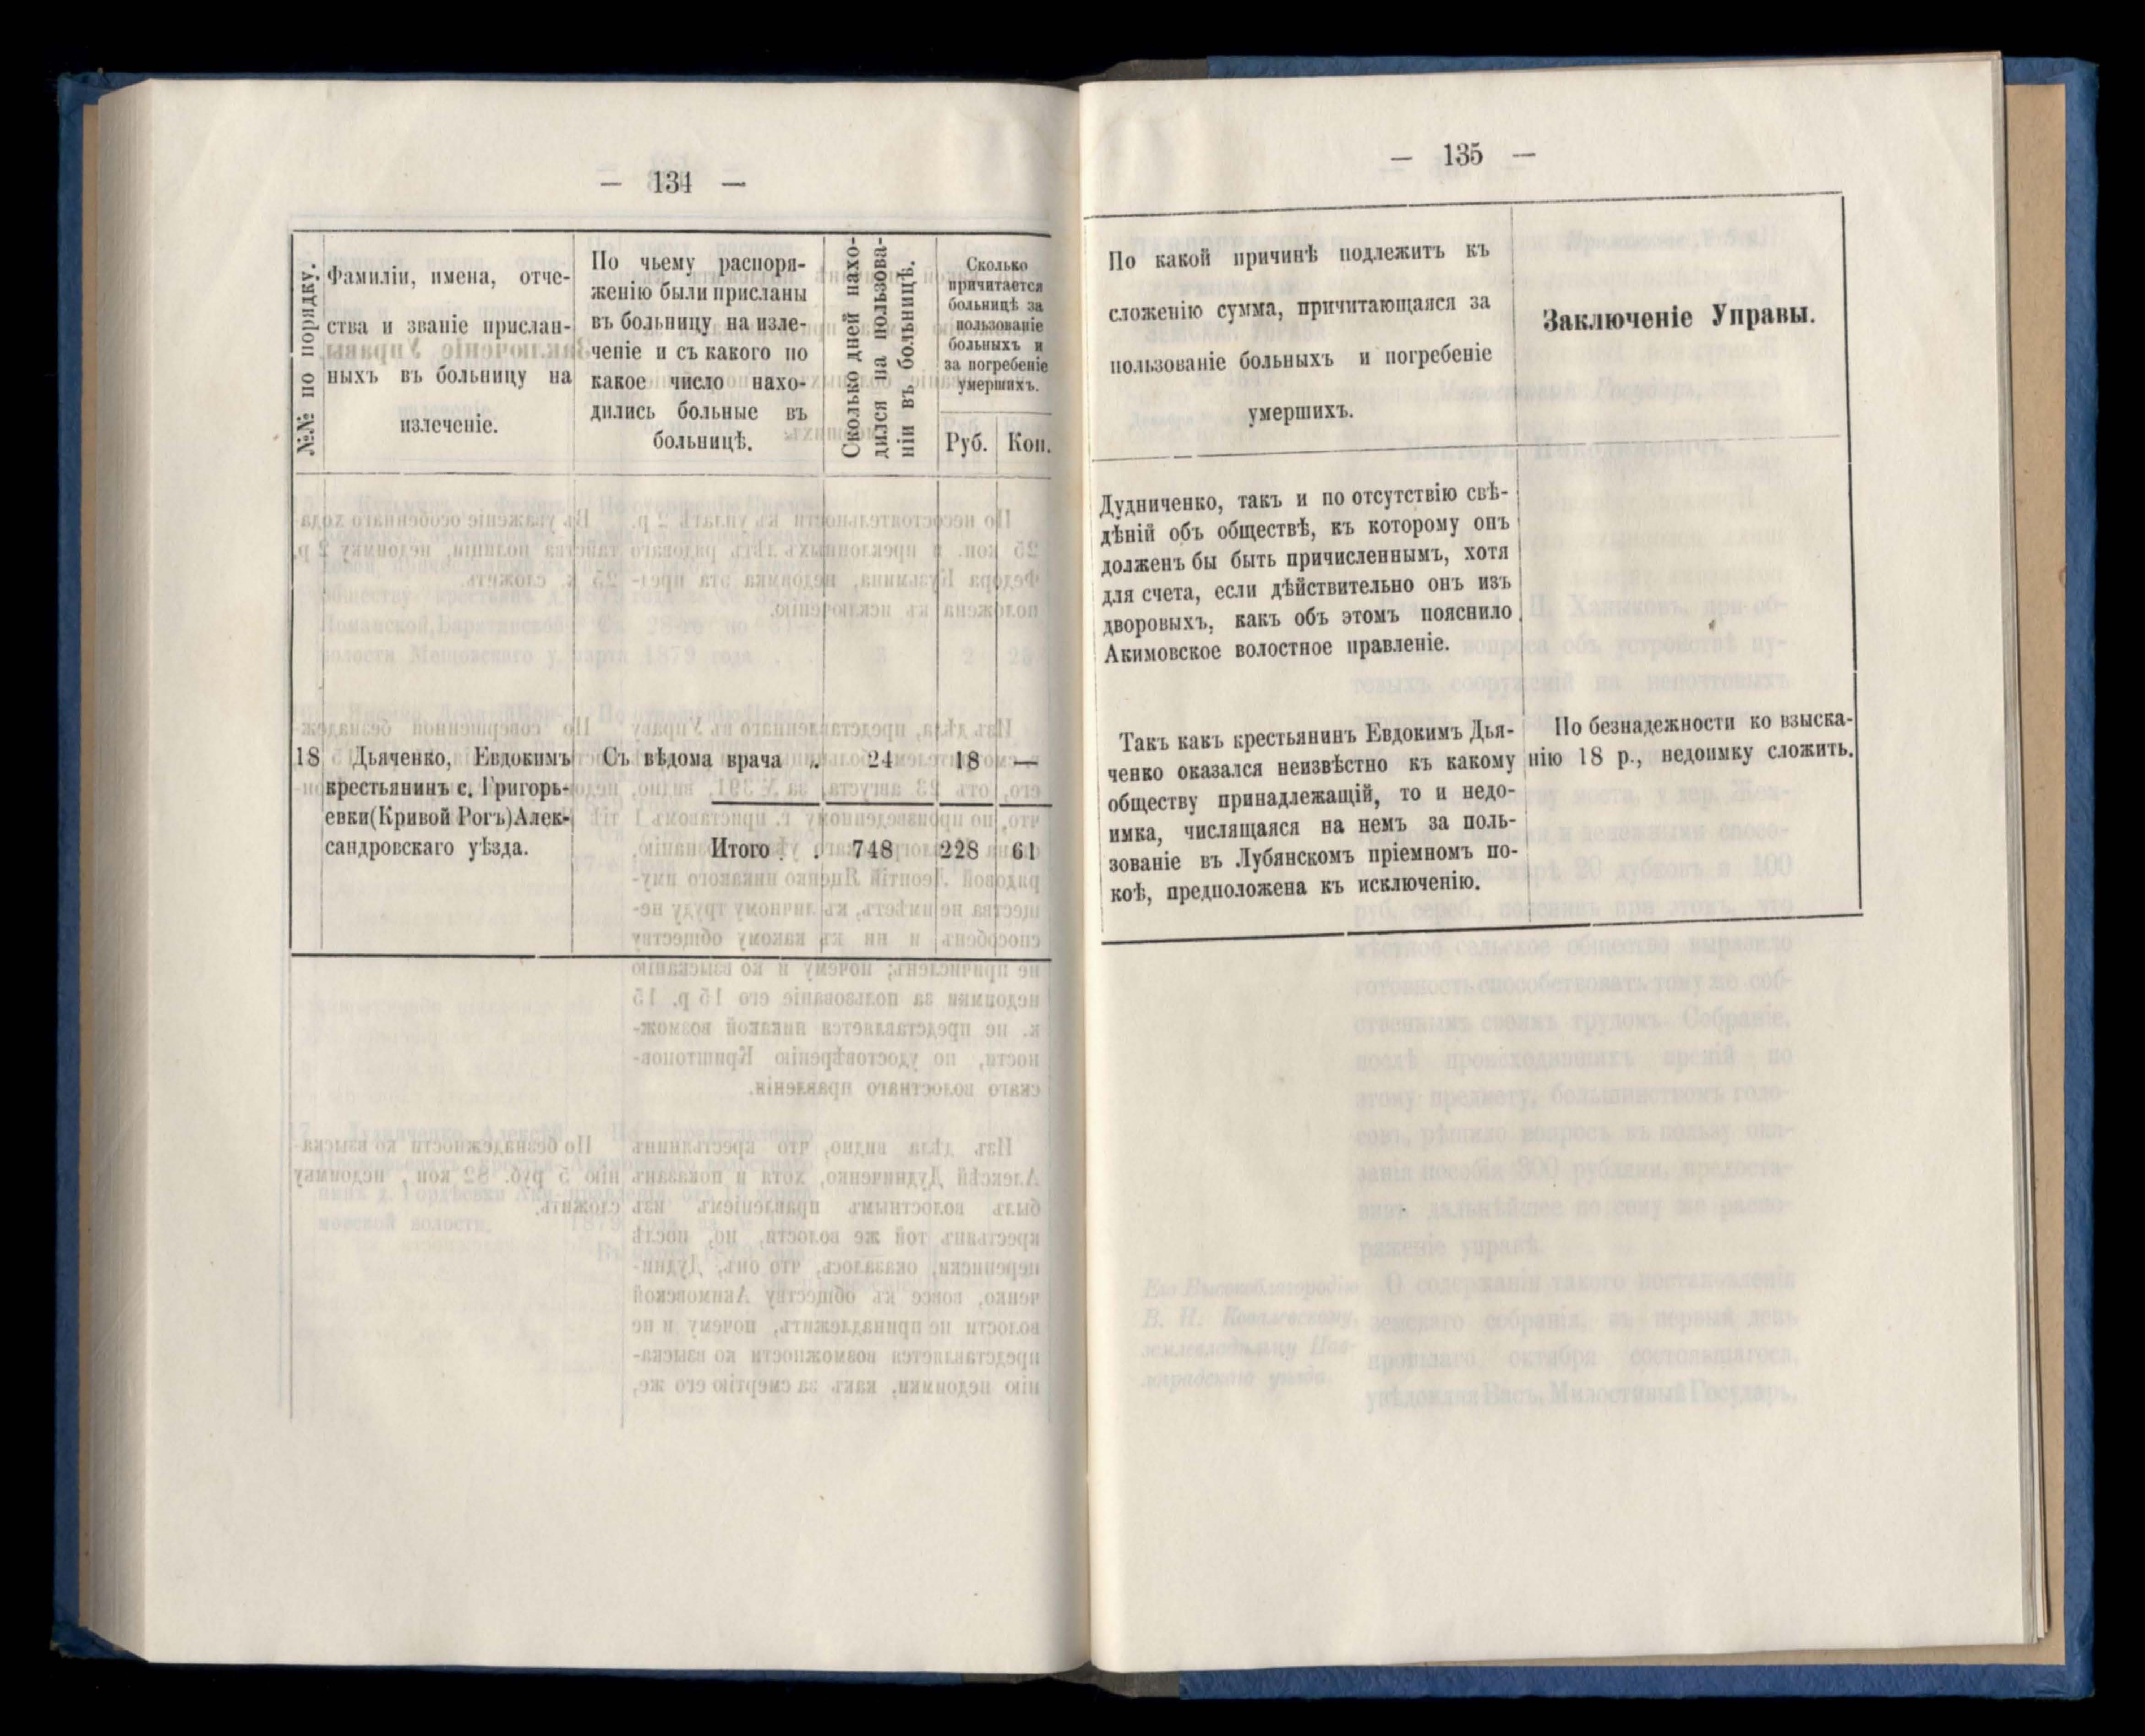 — 134 —
№№ по порядку.
Фамиліи, имена, отче-
ства и званіе прислан-
ныхъ въ больницу на
излеченіе.
По чьему распоря-
женію были присланы
въ больницу на изле-
ченіе и съ какого по
какое число нахо-
дились больные въ
больницѣ.
Сколько дней нахо-
дился на пользова-
ніи въ больницѣ.
Сколько
причитается
больницѣ за
пользованіе
больныхъ и
за погребеніе
умершихъ.
Руб. Коп.
18 Дьяченко, Евдокимъ Съ вѣдома врача . 24 18 —
крестьянинъ с. Григорь-
евки(Кривой Рогъ)Алек-
сандровскаго уѣзда. Итого . . 748 228 61
— 135 —
По какой причинѣ подлежитъ къ
сложенію сумма, причитающаяся за
пользованіе больныхъ и погребеніе
умершихъ.
Заключеніе Управы.
Дудниченко, такъ и по отсутствію свѣ-
дѣній объ обществѣ, къ которому онъ
долженъ бы быть причисленнымъ, хотя
для счета, если дѣйствительно онъ изъ
дворовыхъ, какъ объ этомъ пояснило
Акимовское волостное правленіе.
Такъ какъ крестьянинъ Евдокимъ Дья-
ченко оказался неизвѣстно къ какому
обществу принадлежащій, то и недо-
имка, числящаяся на немъ за поль-
зованіе въ Лубянскомъ пріемномъ по-
коѣ, предположена къ исключенію.
По безнадежности ко взыска-
нію 18 р., недоимку сложить.